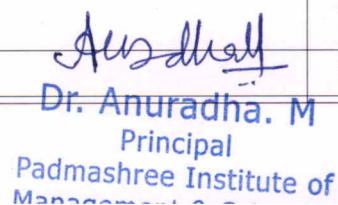 Dr. Anuradha. M
Principal
Padmashree Institute of
Management &